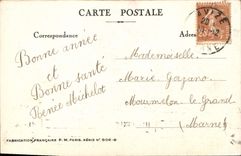 CARTE POSTALE
Correspondance
Bonne année
et
Bonne santé
Renée Michelot
Mademoiselle
Marie Gazano
Mourmelon le Grand
Marne
FABRICATION FRANÇAISE P. M. PARIS. SÉRIE Nº